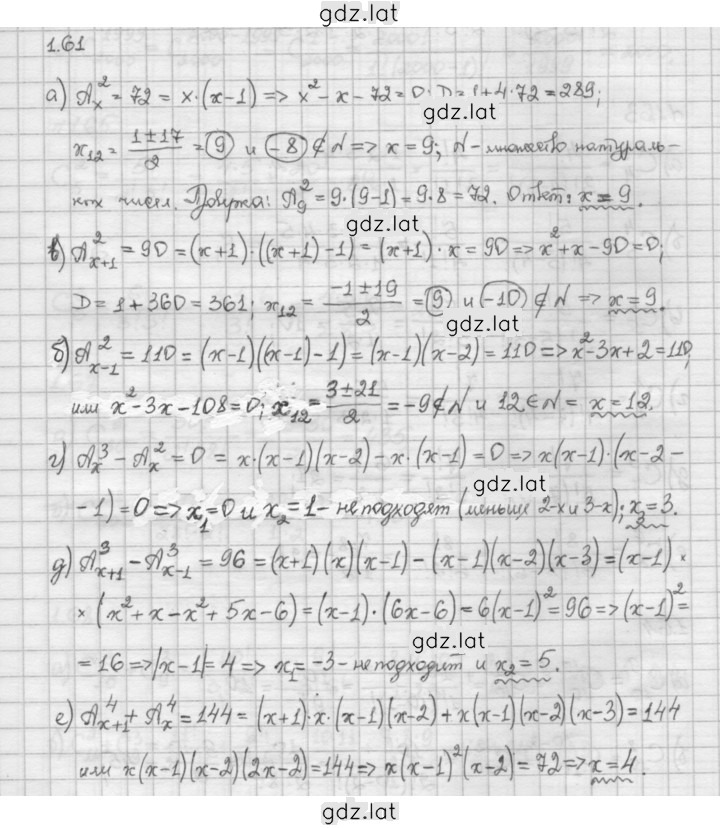 gdz.lat
1.61
а) A_x^2 = 72 = x·(x-1) => x^2 - x - 72 = 0. D = 1+4·72 = 289;
gdz.lat
x_12 = (1±17)/2 = 9 и -8 ∉ N => x = 9; N - множество натураль-
ных чисел. Проверка: A_9^2 = 9·(9-1) = 9·8 = 72. Ответ: x = 9.
gdz.lat
в) A_{x+1}^2 = 90 = (x+1)·((x+1)-1) = (x+1)·x = 90 => x^2+x-90 = 0;
D = 1+360 = 361; x_12 = (-1±19)/2 = 9 и -10 ∉ N => x = 9.
gdz.lat
б) A_{x-1}^2 = 110 = (x-1)((x-1)-1) = (x-1)(x-2) = 110 => x^2-3x+2 = 110,
или x^2-3x-108 = 0; x_12 = (3±21)/2 = -9 ∉ N и 12 ∈ N = x = 12.
г) A_x^3 - A_x^2 = 0 = x·(x-1)(x-2) - x·(x-1) = 0 => x(x-1)·(x-2-
gdz.lat
-1) = 0 => x_1 = 0 и x_2 = 1 - не подходят (меньше 2-х и 3-х); x_3 = 3.
д) A_{x+1}^3 - A_{x-1}^3 = 96 = (x+1)(x)(x-1) - (x-1)(x-2)(x-3) = (x-1)×
×(x^2+x-x^2+5x-6) = (x-1)·(6x-6) = 6(x-1)^2 = 96 => (x-1)^2 =
gdz.lat
= 16 => |x-1| = 4 => x_1 = -3 - не подходит и x_2 = 5.
е) A_{x+1}^4 + A_x^4 = 144 = (x+1)·x·(x-1)(x-2) + x(x-1)(x-2)(x-3) = 144
или x(x-1)(x-2)(2x-2) = 144 => x(x-1)^2(x-2) = 72 => x = 4.
gdz.lat